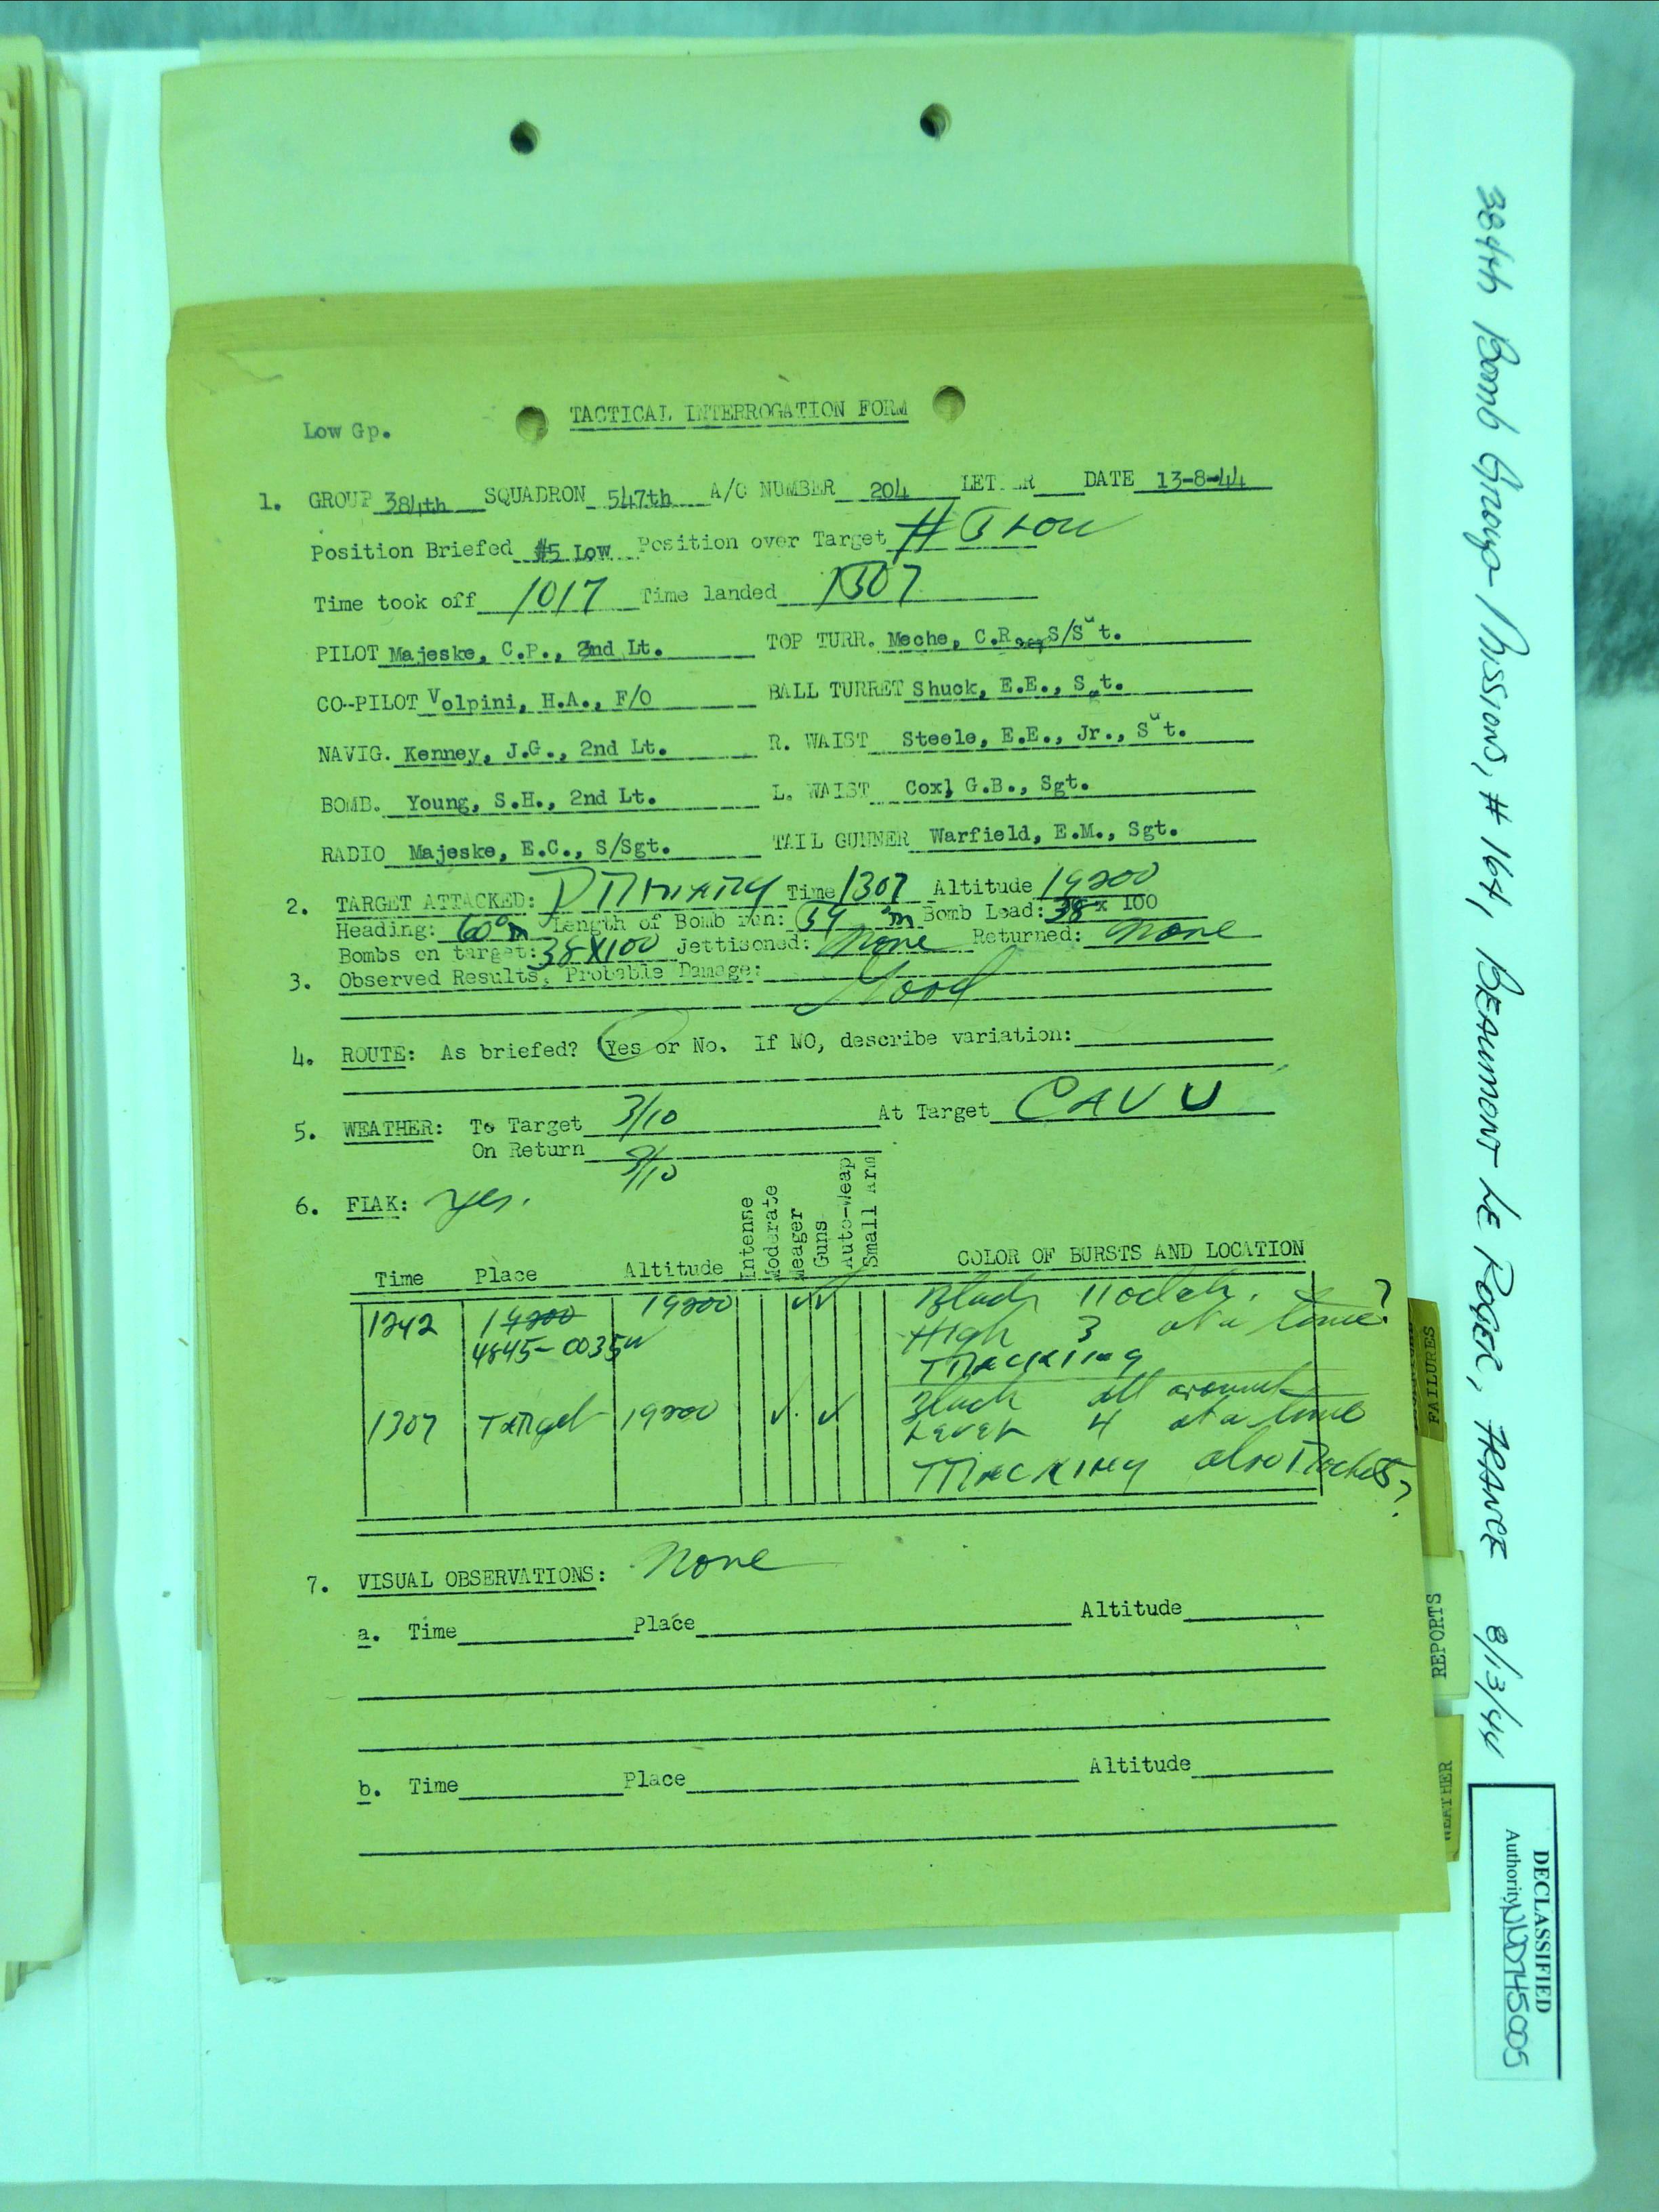 TACTICAL INTERROGATION FORM
Low Gp.
1. GROUP 384th SQUADRON 547th A/C NUMBER 204 LETTER DATE 13-8-44
Position Briefed #5 Low Position over Target #5 Low
Time took off 1017 Time landed 1507
PILOT Majeske, C.P., 2nd Lt. TOP TURR. Meche, C.R., S/Sgt.
CO-PILOT Volpini, H.A., F/O BALL TURRET Shuck, E.E., Sgt.
NAVIG. Kenney, J.G., 2nd Lt. R. WAIST Steele, E.E., Jr., Sgt.
BOMB. Young, S.H., 2nd Lt. L. WAIST Cox, G.B., Sgt.
RADIO Majeske, E.C., S/Sgt. TAIL GUNNER Warfield, E.M., Sgt.
2. TARGET ATTACKED: Primary Time 1307 Altitude 19200
Heading: 60°m Length of Bomb run: Bomb Load: 38 x 100
Bombs on target: 38X100 Jettisoned: None Returned: None
3. Observed Results, Probable Damage: Good
4. ROUTE: As briefed? Yes or No. If NO, describe variation:
5. WEATHER: To Target 3/10 At Target CAVU
On Return 3/10
6. FLAK: yes.
Time Place Altitude Intense Moderate Meager Guns Auto-Weap Small Arm COLOR OF BURSTS AND LOCATION
1242 19200 19200 ✓ ✓ Black
4845-0035W High 3 at a time
Tracking
1307 Target 19200 ✓ ✓ Black all around
Level 4 at a time
Tracking also Rockets?
7. VISUAL OBSERVATIONS: None
a. Time Place Altitude
b. Time Place Altitude
384th Bomb Group Missions, #164, BEAUMONT LE ROGER, FRANCE 8/13/44
FAILURES
REPORTS
WEATHER
DECLASSIFIED
Authority NND745005